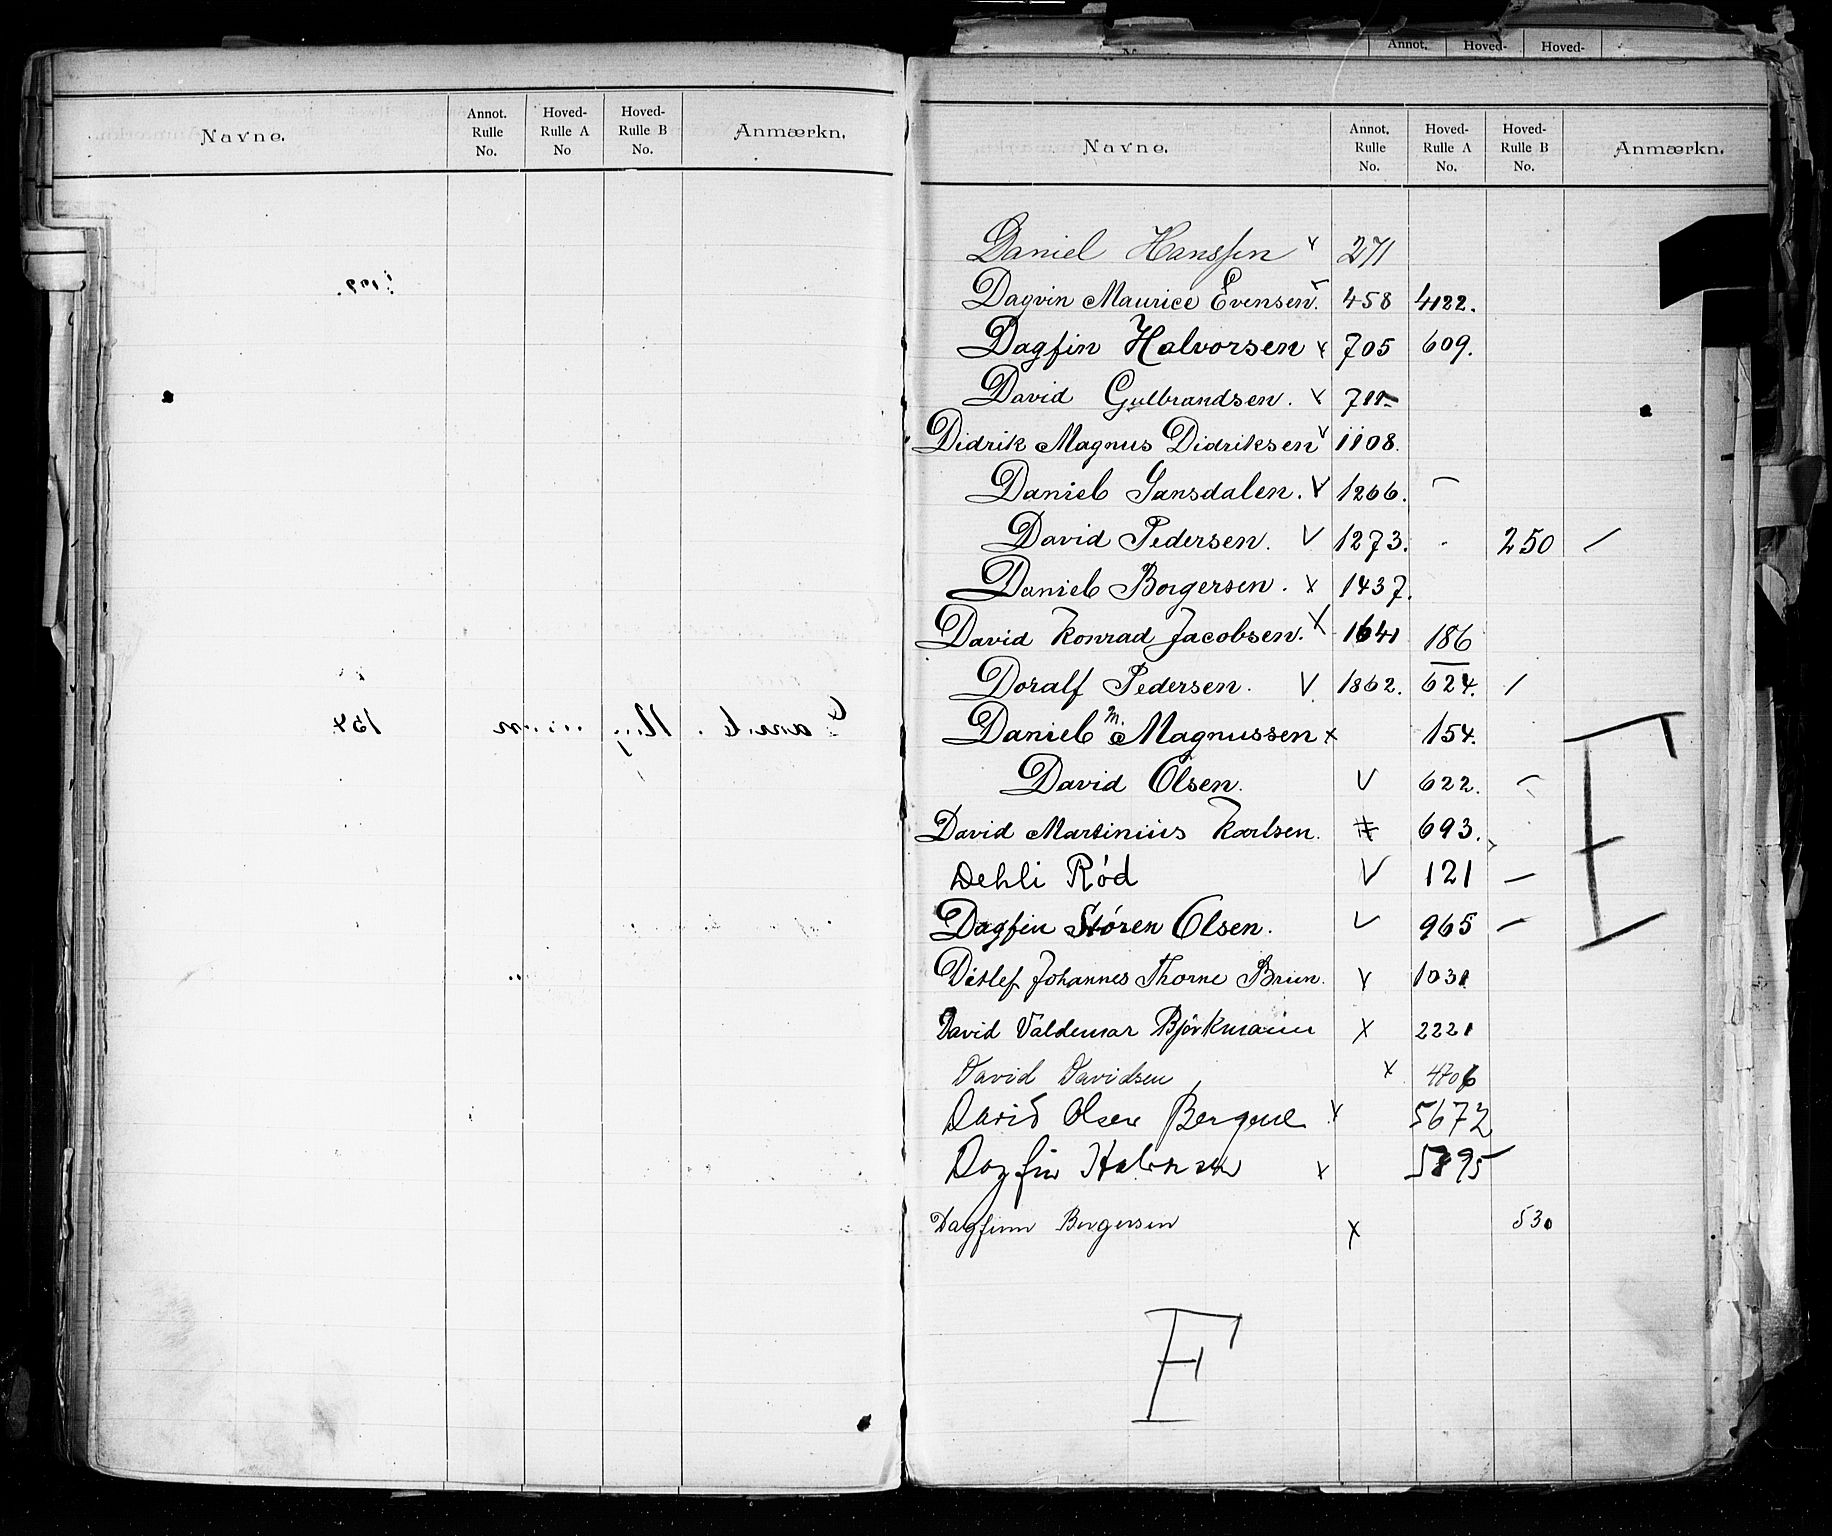 Annot. Hoved- Hoved-
Navne. Annot. Rulle No. Hoved-Rulle A No Hoved-Rulle B No. Anmærkn.
Navne. Annot. Rulle No. Hoved-Rulle A No. Hoved-Rulle B No. Anmærkn.
Daniel Hanssen x 271
Dagvin Maurice Evensen. 458 4122.
Dagfin Halvorsen x 705 609.
David Gulbrandsen. x
Didrik Magnus Didriksen v 1108.
Daniel Gansdalen. V 1266. –
David Pedersen. V 1273. - 250 /
Daniel Borgersen. x 1437.
David Konrad Jacobsen. X 1641 186
Doralf Pedersen. V 1862. 624. /
Daniel M. Magnussen x 154.
David Olsen. V 622. –
David Martinius Karlsen. 693.
Dehli Rød V 121 –
Dagfin Støren Olsen. V 965 –
Ditlef Johannes Thorne Brun. x 1031
David Valdemar Björkmann x 2221
David Davidsen x 4706
David Olsen x 5672
Dagfin x 5895
Dagfinn Borgersen x 530
E
F